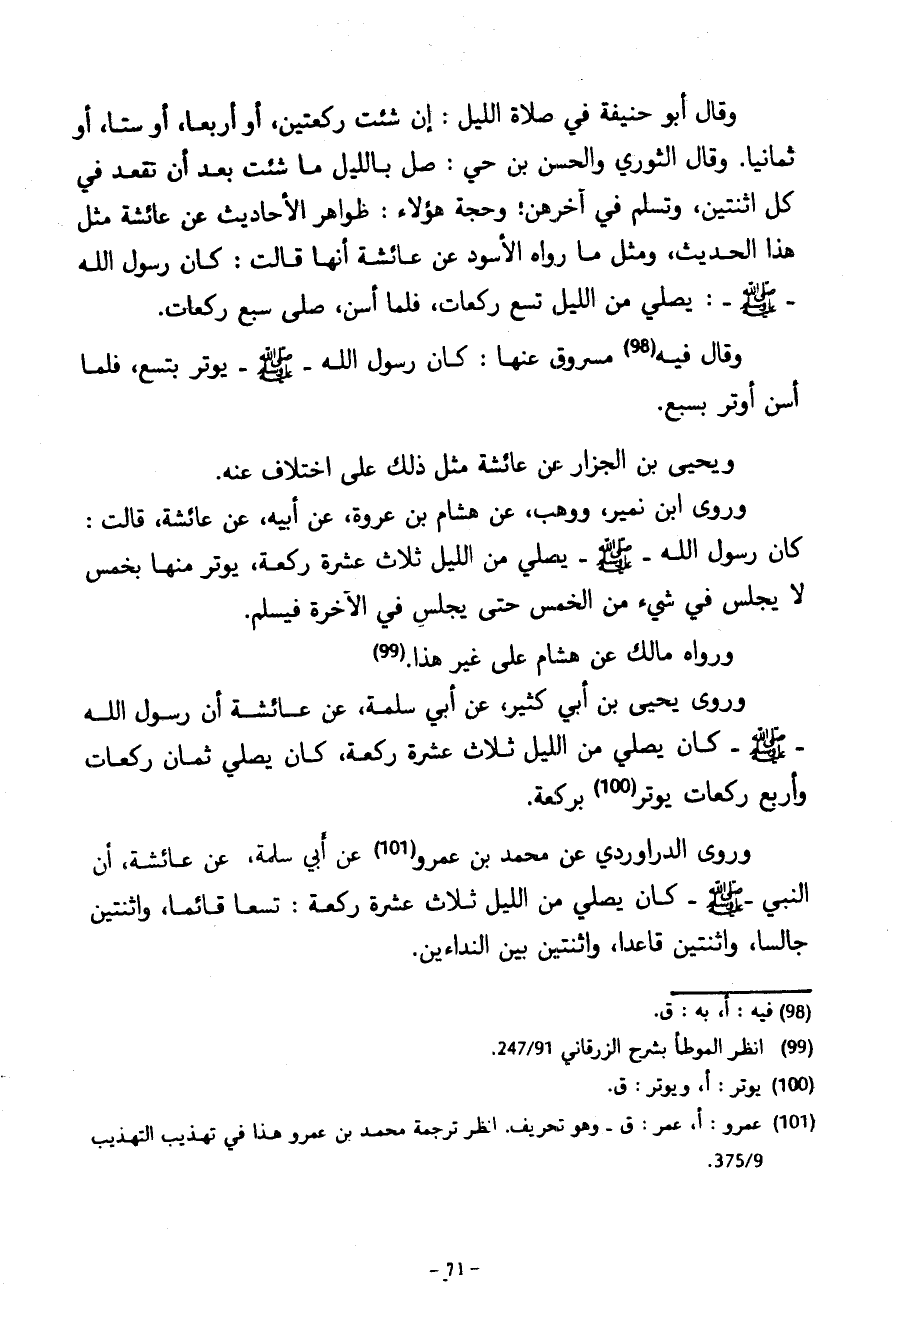 وقال أبو حنيفة في صلاة الليل : إن شئت ركعتين، أو أربعا، أو ستا، أو
ثمانيا. وقال الثوري والحسن بن حي : صل بالليل ما شئت بعد أن تقعد في
كل اثنتين، وتسلم في آخرهن؛ وحجة هؤلاء : ظواهر الأحاديث عن عائشة مثل
هذا الحديث، ومثل ما رواه الأسود عن عائشة أنها قالت : كان رسول الله
- ﷺ - : يصلي من الليل تسع ركعات، فلما أسن، صلى سبع ركعات.
وقال فيه(98) مسروق عنها : كان رسول الله - ﷺ - يوتر بتسع، فلما
أسن أوتر بسبع.
ويحيى بن الجزار عن عائشة مثل ذلك على اختلاف عنه.
وروى ابن نمير، ووهب، عن هشام بن عروة، عن أبيه، عن عائشة، قالت :
كان رسول الله - ﷺ - يصلي من الليل ثلاث عشرة ركعة، يوتر منها بخمس
لا يجلس في شيء من الخمس حتى يجلس في الآخرة فيسلم.
ورواه مالك عن هشام على غير هذا.(99)
وروى يحيى بن أبي كثير، عن أبي سلمة، عن عائشة أن رسول الله
- ﷺ - كان يصلي من الليل ثلاث عشرة ركعة، كان يصلي ثمان ركعات
وأربع ركعات يوتر(100) بركعة.
وروى الدراوردي عن محمد بن عمرو(101) عن أبي سلمة، عن عائشة، أن
النبي -ﷺ - كان يصلي من الليل ثلاث عشرة ركعة : تسعا قائما، واثنتين
جالسا، واثنتين قاعدا، واثنتين بين النداءين.
(98) فيه : أ، به : ق.
(99) انظر الموطأ بشرح الزرقاني 247/91.
(100) يوتر : أ، ويوتر : ق.
(101) عمرو : أ، عمر : ق - وهو تحريف. انظر ترجمة محمد بن عمرو هذا في تهذيب التهذيب
375/9.
- 71 -